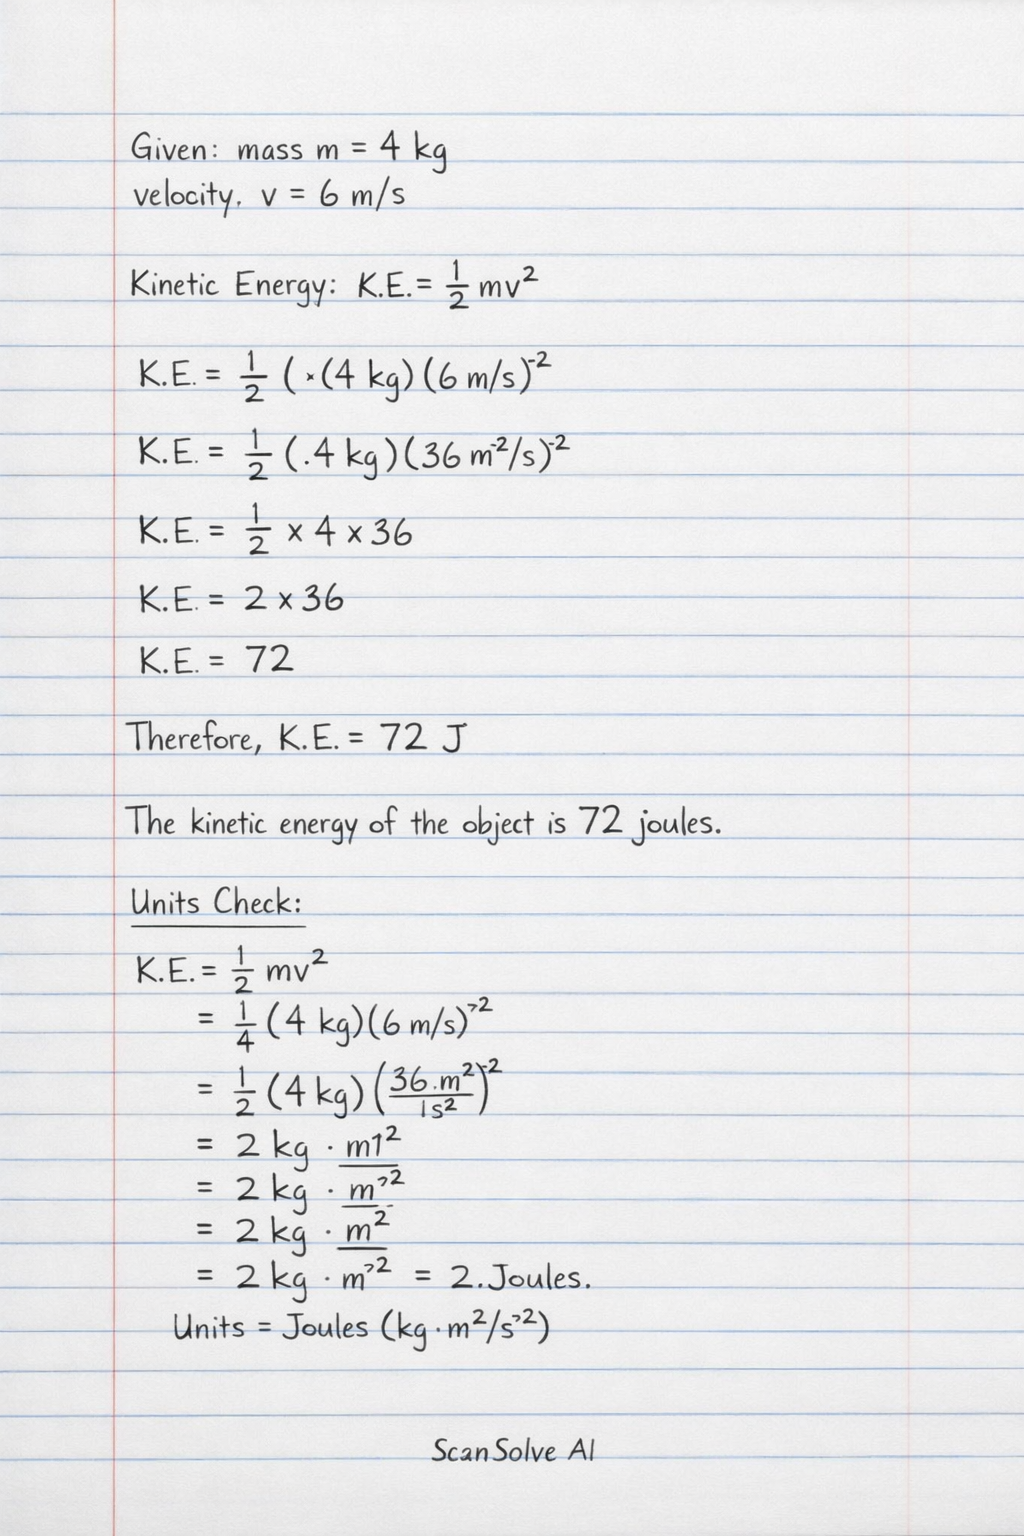 Given: mass m = 4 kg
velocity. v = 6 m/s
Kinetic Energy: K.E. = 1/2 mv²
K.E. = 1/2 (×(4 kg)(6 m/s)⁻²
K.E. = 1/2 (.4 kg)(36 m⁻²/s)⁻²
K.E. = 1/2 × 4 × 36
K.E. = 2 × 36
K.E. = 72
Therefore, K.E. = 72 J
The kinetic energy of the object is 72 joules.
Units Check:
K.E. = 1/2 mv²
= 1/4 (4 kg)(6 m/s)^2
= 1/2 (4 kg)(36.m²/1s²)⁻²
= 2 kg · m1²
= 2 kg · m^2
= 2 kg · m²
= 2 kg · m^2 = 2.Joules.
Units = Joules (kg·m²/s^2)
ScanSolve AI